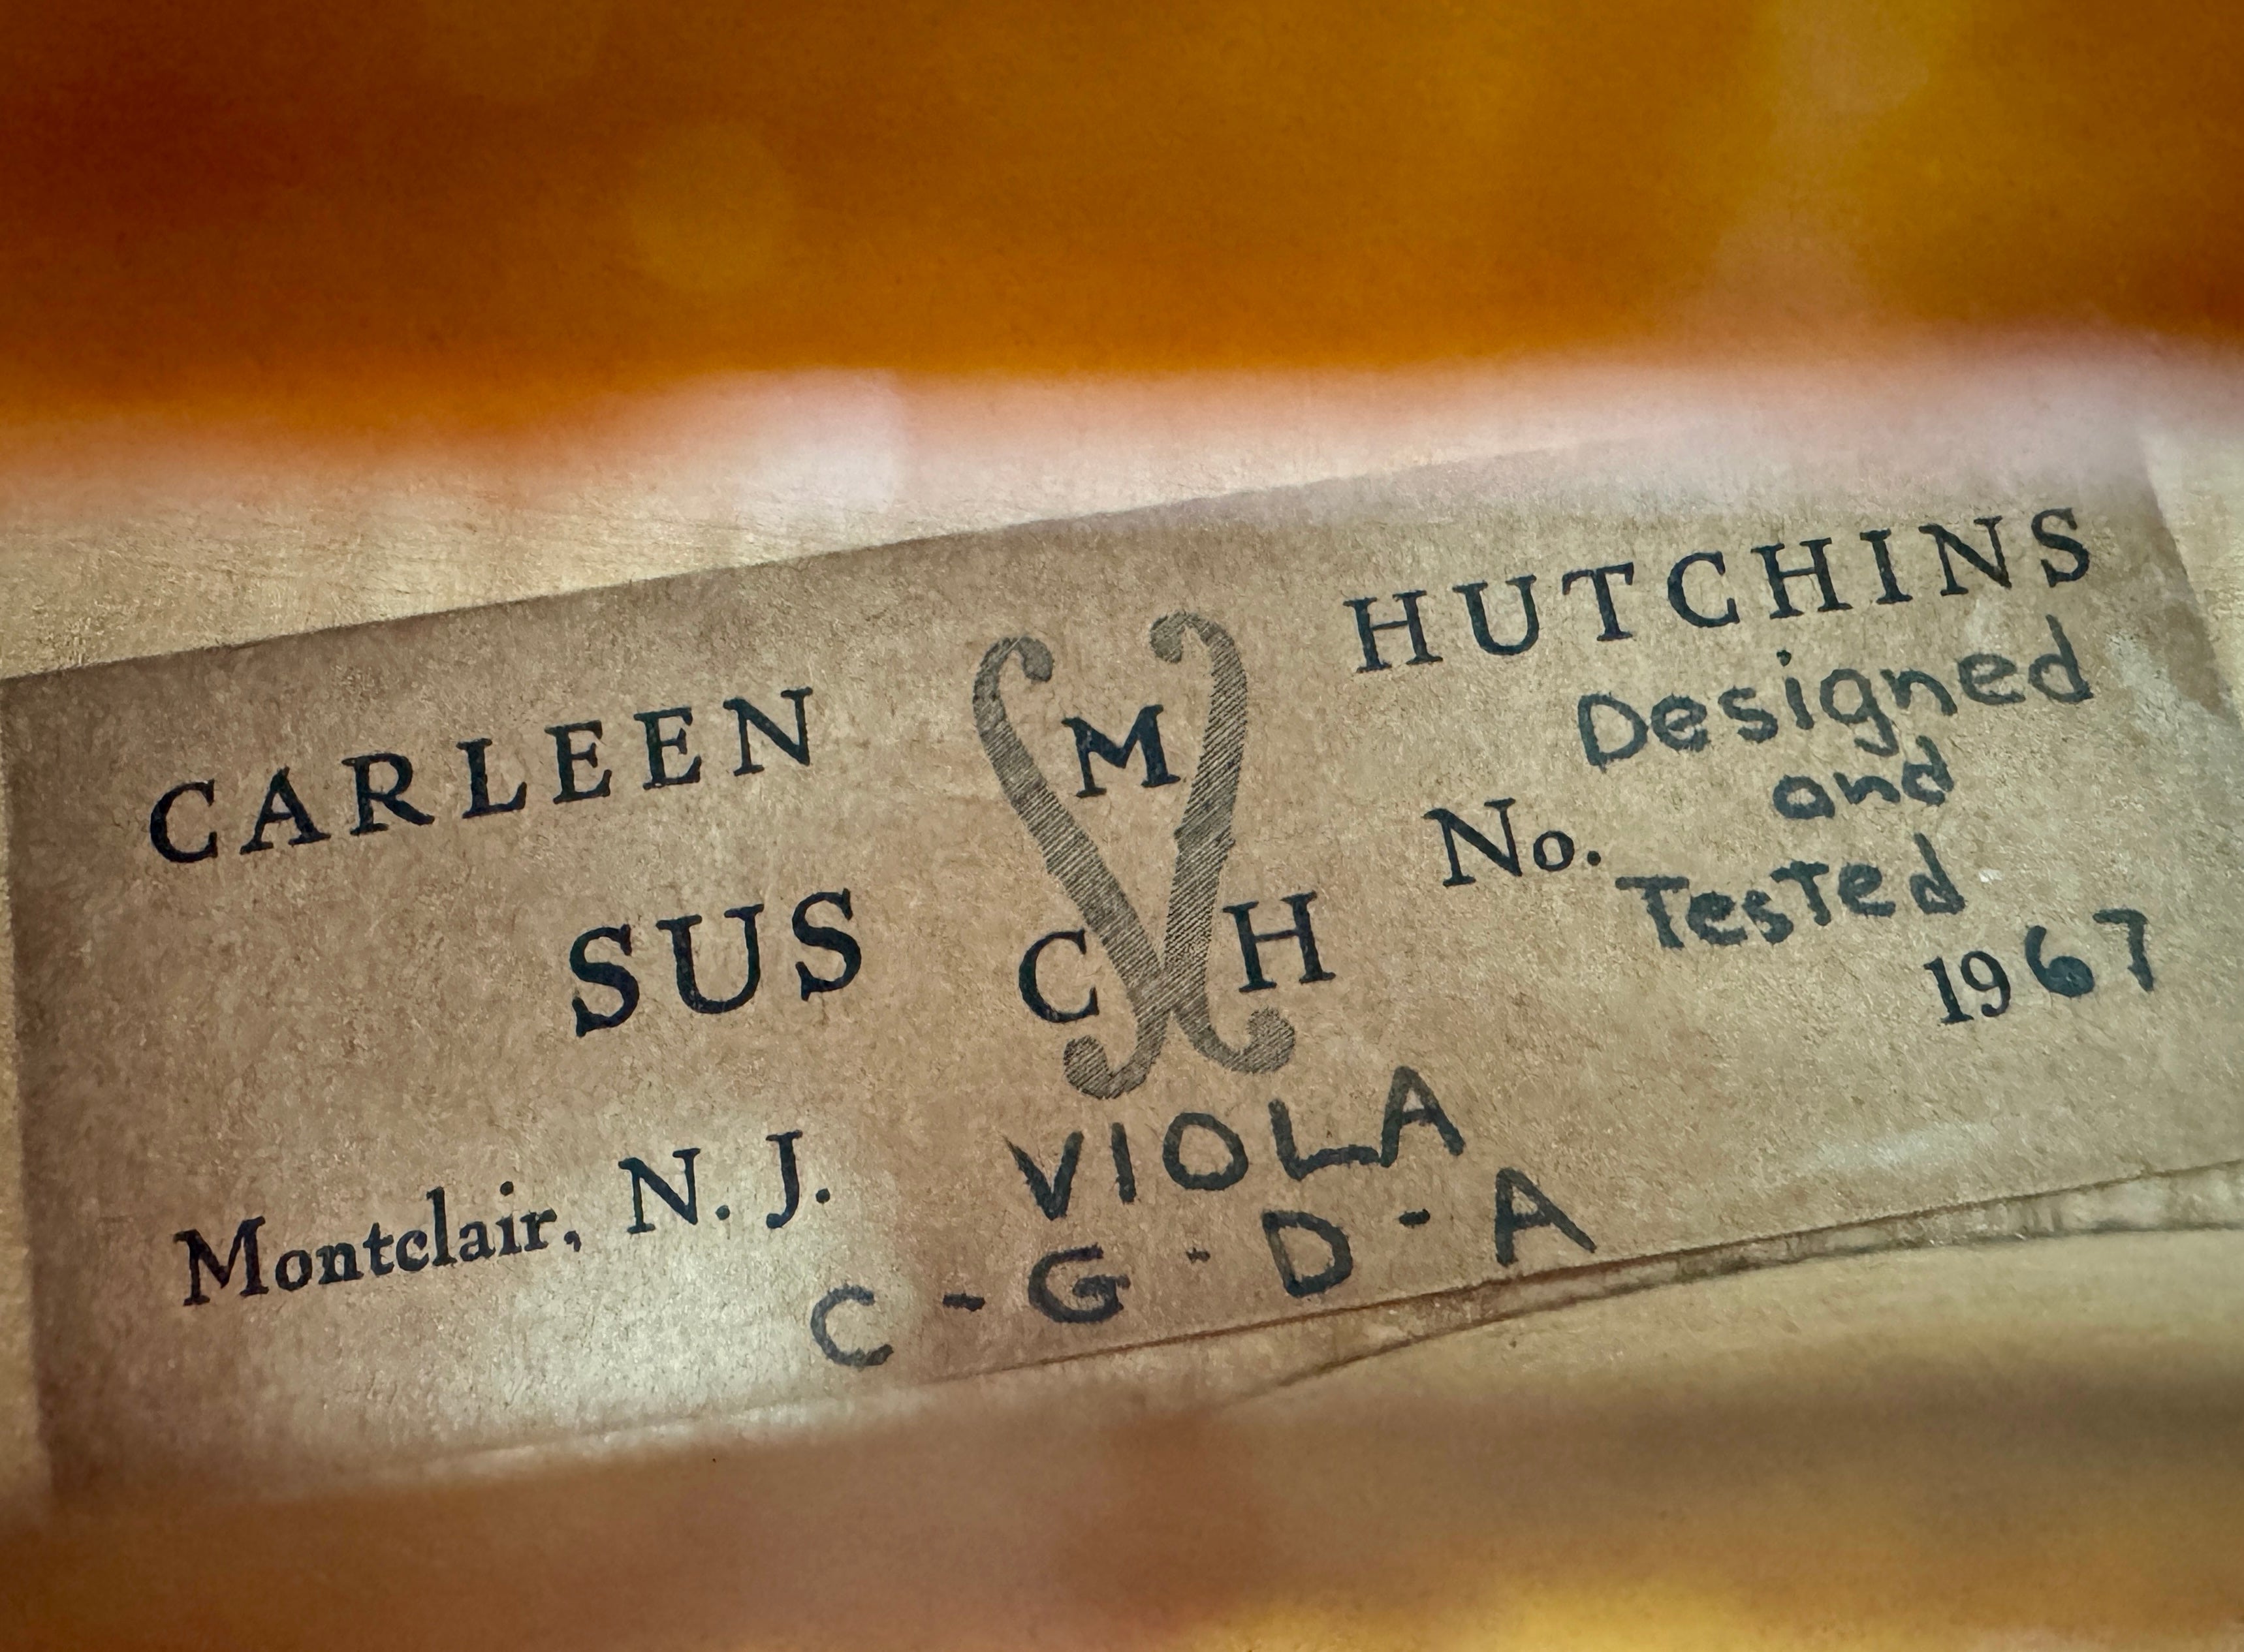 CARLEEN M HUTCHINS
Designed
and
SUS C H No. Tested
1967
Montclair, N. J. VIOLA
C - G - D - A